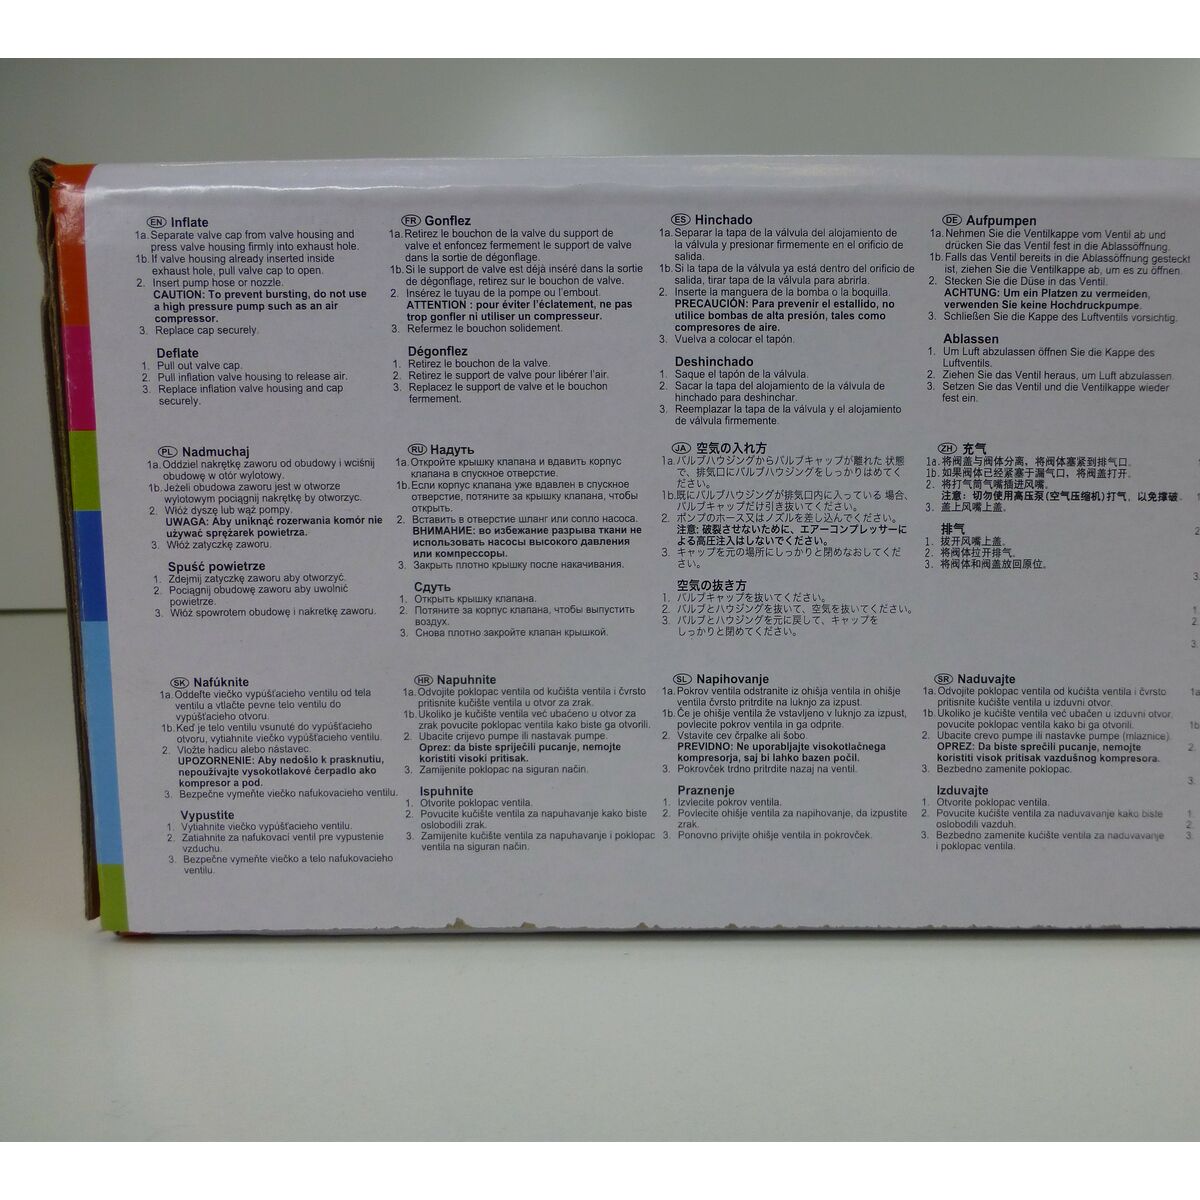 EN Inflate
1a. Separate valve cap from valve housing and
press valve housing firmly into exhaust hole.
1b. If valve housing already inserted inside
exhaust hole, pull valve cap to open.
2. Insert pump hose or nozzle.
CAUTION: To prevent bursting, do not use
a high pressure pump such as an air
compressor.
3. Replace cap securely.
Deflate
1. Pull out valve cap.
2. Pull inflation valve housing to release air.
3. Replace inflation valve housing and cap
securely.
FR Gonflez
1a. Retirez le bouchon de la valve du support de
valve et enfoncez fermement le support de valve
dans la sortie de dégonflage.
1b. Si le support de valve est déjà inséré dans la sortie
de dégonflage, retirez sur le bouchon de valve.
2. Insérez le tuyau de la pompe ou l'embout.
ATTENTION : pour éviter l'éclatement, ne pas
trop gonfler ni utiliser un compresseur.
3. Refermez le bouchon solidement.
Dégonflez
1. Retirez le bouchon de la valve.
2. Retirez le support de valve pour libérer l'air.
3. Replacez le support de valve et le bouchon
fermement.
ES Hinchado
1a. Separar la tapa de la válvula del alojamiento de
la válvula y presionar firmemente en el orificio de
salida.
1b. Si la tapa de la válvula ya está dentro del orificio de
salida, tirar tapa de la válvula para abriria.
2. Inserte la manguera de la bomba o la boquilla.
PRECAUCIÓN: Para prevenir el estallido, no
utilice bombas de alta presión, tales como
compresores de aire.
3. Vuelva a colocar el tapón.
Deshinchado
1. Saque el tapón de la válvula.
2. Sacar la tapa del alojamiento de la válvula de
hinchado para deshinchar.
3. Reemplazar la tapa de la válvula y el alojamiento
de válvula firmemente.
DE Aufpumpen
1a. Nehmen Sie die Ventilkappe vom Ventil ab und
drücken Sie das Ventil fest in die Ablassöffnung.
1b. Falls das Ventil bereits in die Ablassöffnung gesteckt
ist, ziehen Sie die Ventilkappe ab, um es zu öffnen.
2. Stecken Sie die Düse in das Ventil.
ACHTUNG: Um ein Platzen zu vermeiden,
verwenden Sie keine Hochdruckpumpe.
3. Schließen Sie die Kappe des Luftventils vorsichtig.
Ablassen
1. Um Luft abzulassen öffnen Sie die Kappe des
Luftventils.
2. Ziehen Sie das Ventil heraus, um Luft abzulassen.
3. Setzen Sie das Ventil und die Ventilkappe wieder
fest ein.
PL Nadmuchaj
1a. Oddziel nakrętkę zaworu od obudowy i wciśnij
obudowę w otór wylotowy.
1b. Jeżeli obudowa zaworu jest w otworze
wylotowym pociągnij nakrętkę by otworzyc.
2. Włóż dyszę lub wąż pompy.
UWAGA: Aby uniknąć rozerwania komór nie
używać sprężarek powietrza.
3. Włóż zatyczkę zaworu.
Spuść powietrze
1. Zdejmij zatyczkę zaworu aby otworzyć.
2. Pociągnij obudowę zaworu aby uwolnić
powietrze.
3. Włóż spowrotem obudowę i nakretkę zaworu.
RU Надуть
1a. Откройте крышку клапана и вдавить корпус
клапана в спускное отверстие.
1b. Если корпус клапана уже вдавлен в спускное
отверстие, потяните за крышку клапана, чтобы
открыть.
2. Вставить в отверстие шланг или сопло насоса.
ВНИМАНИЕ: во избежание разрыва ткани не
использовать насосы высокого давления
или компрессоры.
3. Закрыть плотно крышку после накачивания.
Сдуть
1. Открыть крышку клапана.
2. Потяните за корпус клапана, чтобы выпустить
воздух.
3. Снова плотно закройте клапан крышкой.
JA 空気の入れ方
1a. バルブハウジングからバルブキャップが離れた 状態
で、排気口にバルブハウジングをしっかりはめてく
ださい。
1b. 既にバルブハウジングが排気口内に入っている 場合、
バルブキャップだけ引き抜いてください。
2. ポンプのホース又はノズルを差し込んでください。
注意: 破裂させないために、エアーコンプレッサーに
よる高圧注入はしないでください。
3. キャップを元の場所にしっかりと閉めなおしてくだ
さい。
空気の抜き方
1. バルブキャップを抜いてください。
2. バルブとハウジングを抜いて、空気を抜いてください。
3. バルブとハウジングを元に戻して、キャップを
しっかりと閉めてください。
ZH 充气
1a. 将阀盖与阀体分离，将阀体塞紧到排气口.
1b. 如果阀体已经紧塞于漏气口，将阀盖打开.
2. 将打气筒气嘴插进风嘴.
注意: 切勿使用高压泵(空气压缩机)打气，以免撑破.
3. 盖上风嘴上盖.
排气
1. 拔开风嘴上盖.
2. 将阀体拉开排气.
3. 将阀体和阀盖放回原位.
SK Nafúknite
1a. Oddeľte viečko vypúšťacieho ventilu od tela
ventilu a vtlačte pevne telo ventilu do
vypúšťacieho otvoru.
1b. Keď je telo ventilu vsunuté do vypúšťacieho
otvoru, vytiahnite viečko ventilu.
2. Vložte hadicu alebo nástavec.
UPOZORNENIE: Aby nedošlo k prasknutiu,
nepoužívajte vysokotlakové čerpadlo ako
kompresor a pod.
3. Bezpečne vymeňte viečko nafukovacieho ventilu.
Vypustite
1. Vytiahnite viečko vypúšťacieho ventilu.
2. Zatiahnite za nafukovací ventil pre vypustenie
vzduchu.
3. Bezpečne vymeňte viečko a telo nafukovacieho
ventilu.
HR Napuhnite
1a. Odvojite poklopac ventila od kućišta ventila i čvrsto
pritisnite kućište ventila u otvor za zrak.
1b. Ukoliko je kućište ventila već ubačeno u otvor za
zrak povucite poklopac ventila kako biste ga otvorili.
2. Ubacite crijevo pumpe ili nastavak pumpe.
Oprez: da biste spriječili pucanje, nemojte
koristiti visoki pritisak.
3. Zamijenite poklopac na siguran način.
Ispuhnite
1. Otvorite poklopac ventila.
2. Povucite kućište ventila za napuhavanje kako biste
oslobodili zrak.
3. Zamijenite kućište ventila za napuhavanje i poklopac
ventila na siguran način.
SL Napihovanje
1a. Pokrov ventila odstranite iz ohišja ventila in ohišje
ventila čvrsto pritrdite na luknjo za izpust.
1b. Če je ohišje ventila že vstavljeno v luknjo za izpust,
povlecite pokrov ventila in ga odprite.
2. Vstavite cev črpalke ali šobo.
PREVIDNO: Ne uporabljajte visokotlačnega
kompresorja, saj bi lahko bazen počil.
3. Pokrovček trdno pritrdite nazaj na ventil.
Praznenje
1. Izvlecite pokrov ventila.
2. Povlecite ohišje ventila za napihovanje, da izpustite
zrak.
3. Ponovno privijte ohišje ventila in pokrovček.
SR Naduvajte
1a. Odvojite poklopac ventila od kućišta ventila i čvrsto
pritisnite kućište ventila u izduvni otvor.
1b. Ukoliko je kućište ventila već ubačen u izduvni otvor,
povucite poklopac ventila kako bi ga otvorili.
2. Ubacite crevo pumpe ili nastavke pumpe (mlaznice).
OPREZ: Da biste sprečili pucanje, nemojte
koristiti visok pritisak vazdušnog kompresora.
3. Bezbedno zamenite poklopac.
Izduvajte
1. Otvorite poklopac ventila.
2. Povucite kućište ventila za naduvavanje kako biste
oslobodili vazduh.
3. Bezbedno zamenite kućište ventila za naduvavanje
i poklopac ventila.